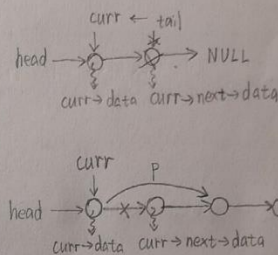 curr ← tail
head → → → NULL
curr→data curr→next→data
curr P
head →
curr→data curr→next→data